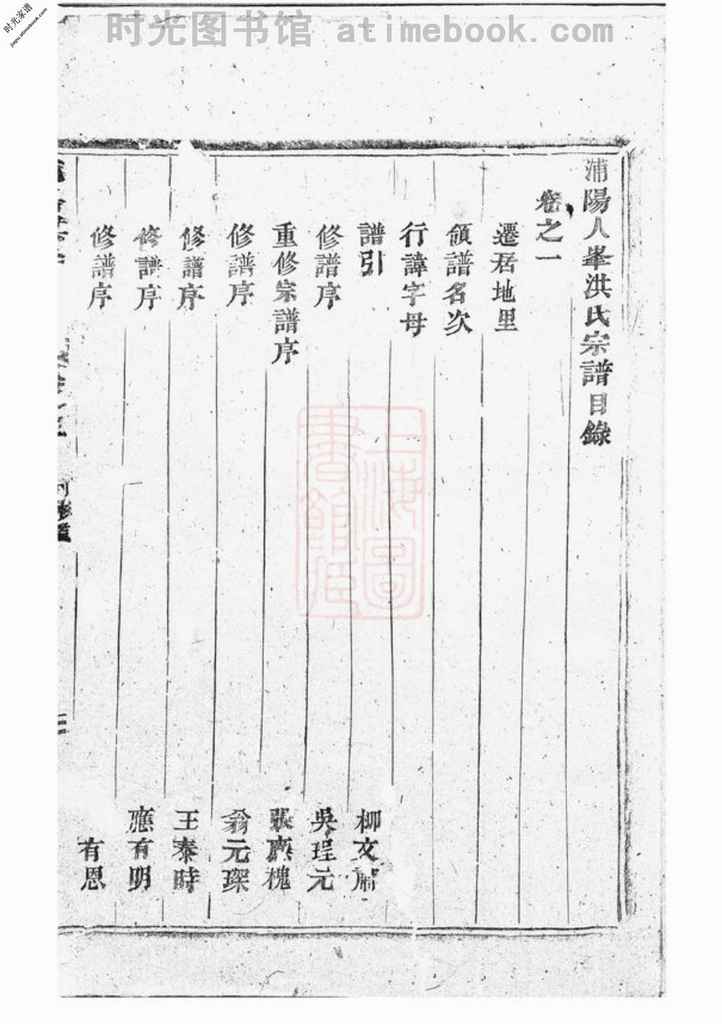 时光图书馆 atimebook.com
时光家谱
jiapu.atimebook.com
浦陽人峯洪氏宗譜目錄
卷之一
遷居地里
領譜名次
行諱字母
譜引 柳文
修譜序 吳珵元
重修宗譜序 張應槐
修譜序 翁元琛
修譜序 王泰時
修譜序 應有明
修譜序 有恩
上海圖書館藏